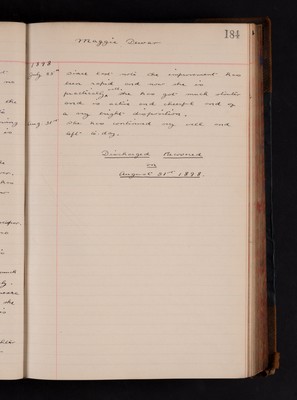 184
Maggie Dewar
1898
July 25th Since last note the improvement has
been rapid and now she is
practically well. She has got much stouter
and is active and cheerful and of
a very bright disposition.
Aug. 31st She has continued very well and
left to-day.
Discharged Recovered
on
August 31st 1898.